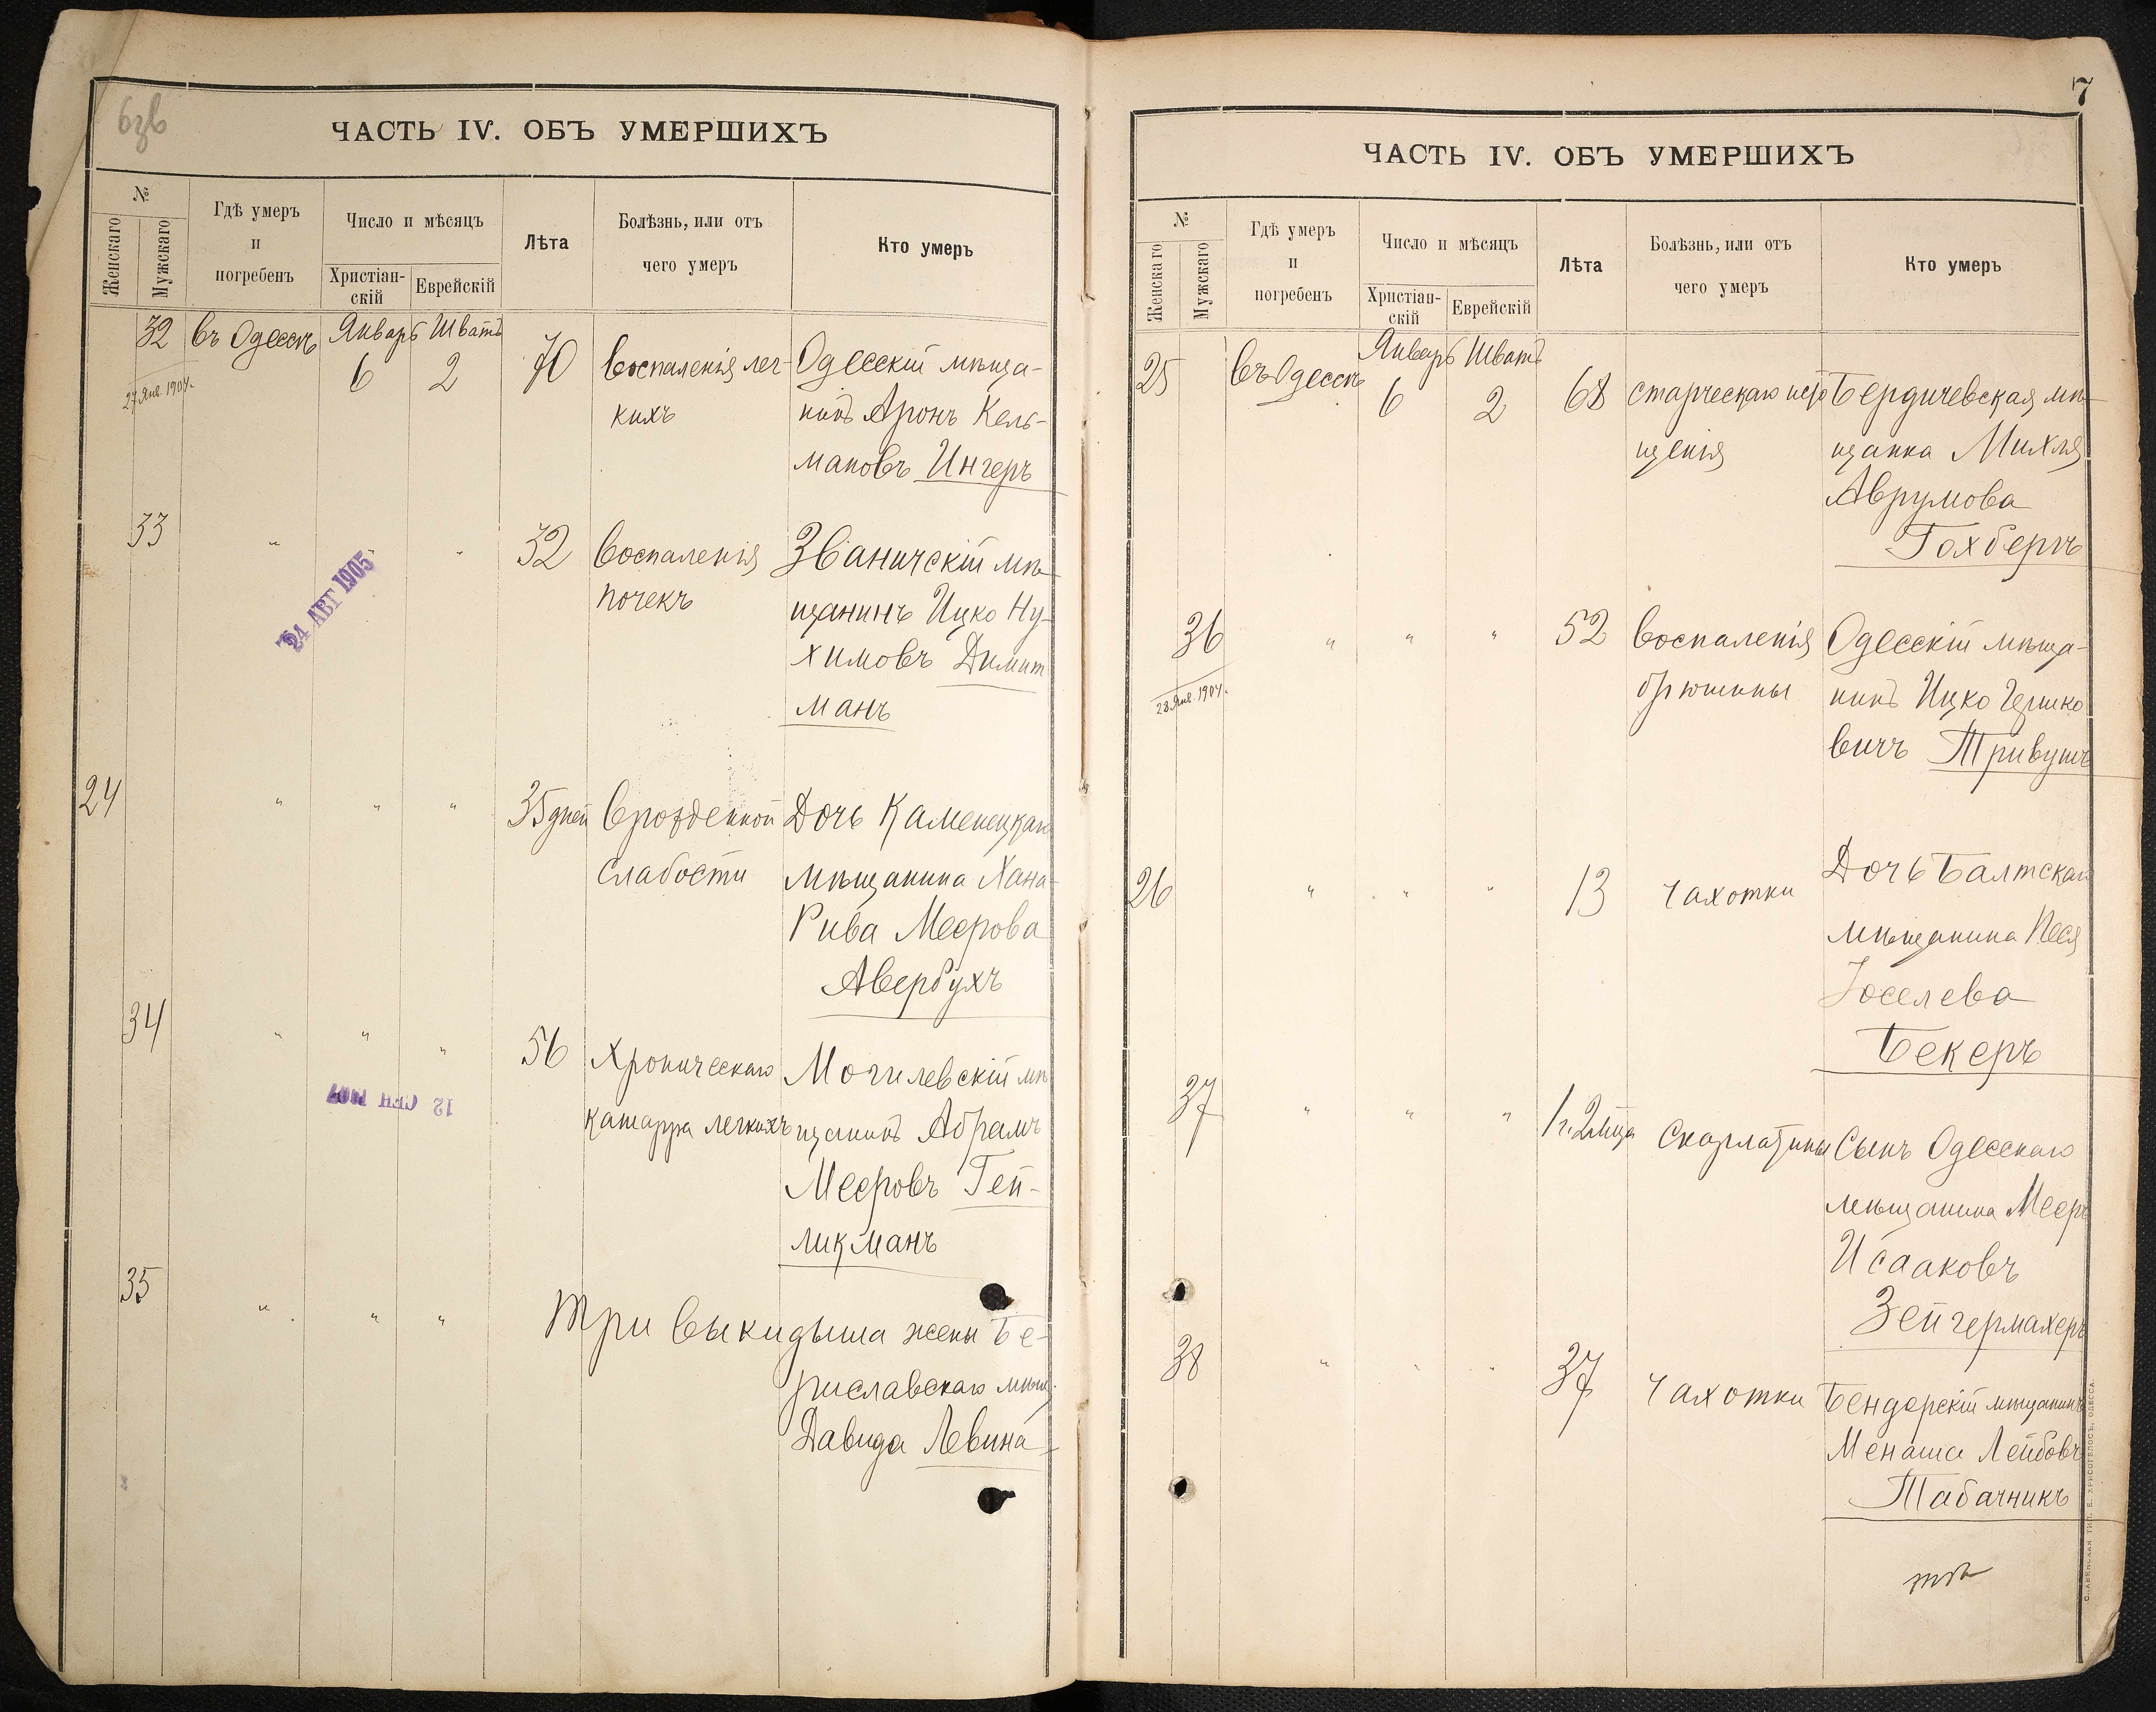 6зв
ЧАСТЬ IV. ОБЪ УМЕРШИХЪ
№
Женскаго
Мужскаго
Гдѣ умеръ
и
погребенъ
Число и мѣсяцъ
Христіан-
скій
Еврейскій
Лѣта
Болѣзнь, или отъ
чего умеръ
Кто умеръ
32 въ Одессѣ Январь Шватъ
27 Янв. 1904.
6 2 70 воспаленія лег- Одесскій мѣща-
кихъ нинъ Аронъ Кель-
мановъ Ингеръ
33 " " 32 Воспаленія Званичскій мѣ-
почекъ щанинъ Ицко Ну-
химовъ Димит
манъ
24 АВГ 1905
24 " " " 35 дней врожденной Дочь Каменецкаго
слабости мѣщанина Хана-
Рива Меерова
Авербухъ
34 " " " 56 Хроническаго Могилевскій мѣ
катарра легкихъ щанинъ Абрамъ
Мееровъ Гей-
ликманъ
12 СЕН
35 " " " Три выкидыша жены Бе-
риславскаго мѣщ.
Давида Левина
7
ЧАСТЬ IV. ОБЪ УМЕРШИХЪ
№
Женскаго
Мужскаго
Гдѣ умеръ
и
погребенъ
Число и мѣсяцъ
Христіан-
скій
Еврейскій
Лѣта
Болѣзнь, или отъ
чего умеръ
Кто умеръ
25 въ Одессѣ Январь Шватъ
6 2 68 старческаго исто Бердичевская мѣ-
щенія щанка Михля
Аврумова
Гохбергъ
36 " " " 52 Воспаленія Одесскій мѣща-
28 Янв. 1904.
брюшины нинъ Ицко Гершко
вичъ Тривушъ
26 " " " 13 чахотки Дочь Балтскаго
мѣщанина Песя
Іоселева
Бекеръ
37 " " " 1 г. 2 мѣца Скарлатины Сынъ Одесскаго
мѣщанина Мееръ
Исааковъ
Зейгермахеръ
38 " " " 37 чахотки Бендерскій мѣщанинъ
Менаше Лейбовъ
Табачникъ
СЛАВЯНСКАЯ ТИП. Е. ХРИСОГЕЛОСЪ, ОДЕССА.